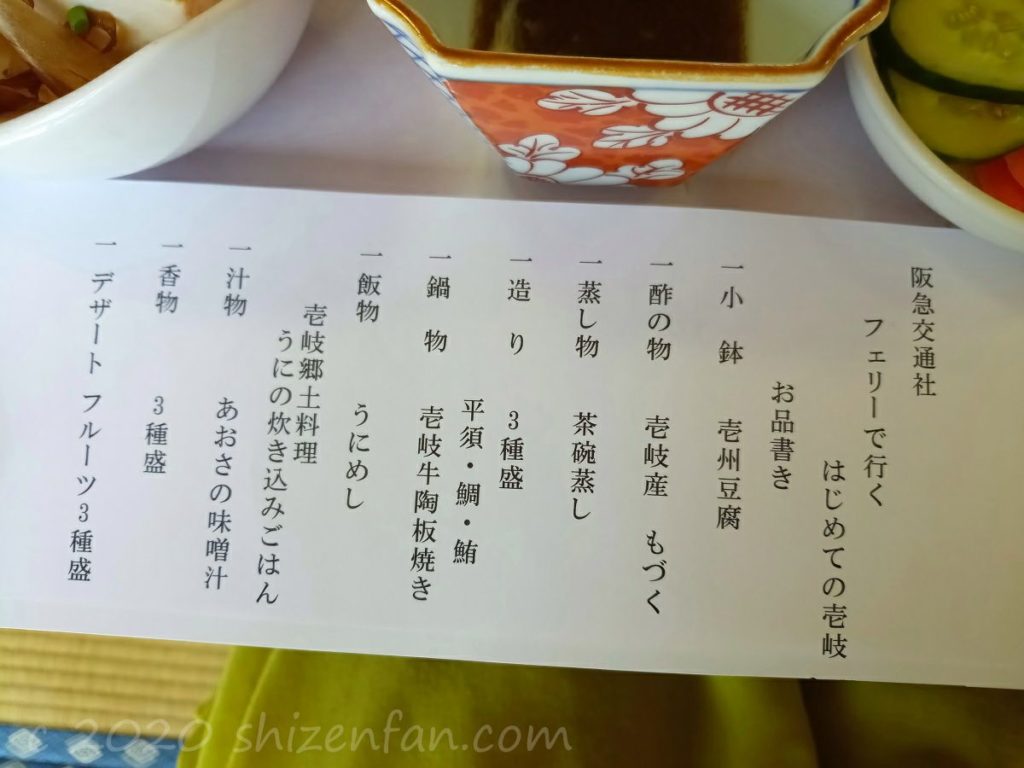 阪急交通社
フェリーで行く
はじめての壱岐
お品書き
一 小 鉢 壱州豆腐
一 酢の物 壱岐産 もづく
一 蒸し物 茶碗蒸し
一 造 り 3種盛
平須・鯛・鮪
一 鍋 物 壱岐牛陶板焼き
一 飯物 うにめし
壱岐郷土料理
うにの炊き込みごはん
一 汁物 あおさの味噌汁
一 香物 3種盛
一 デザート フルーツ3種盛
c 2020 shizenfan.com